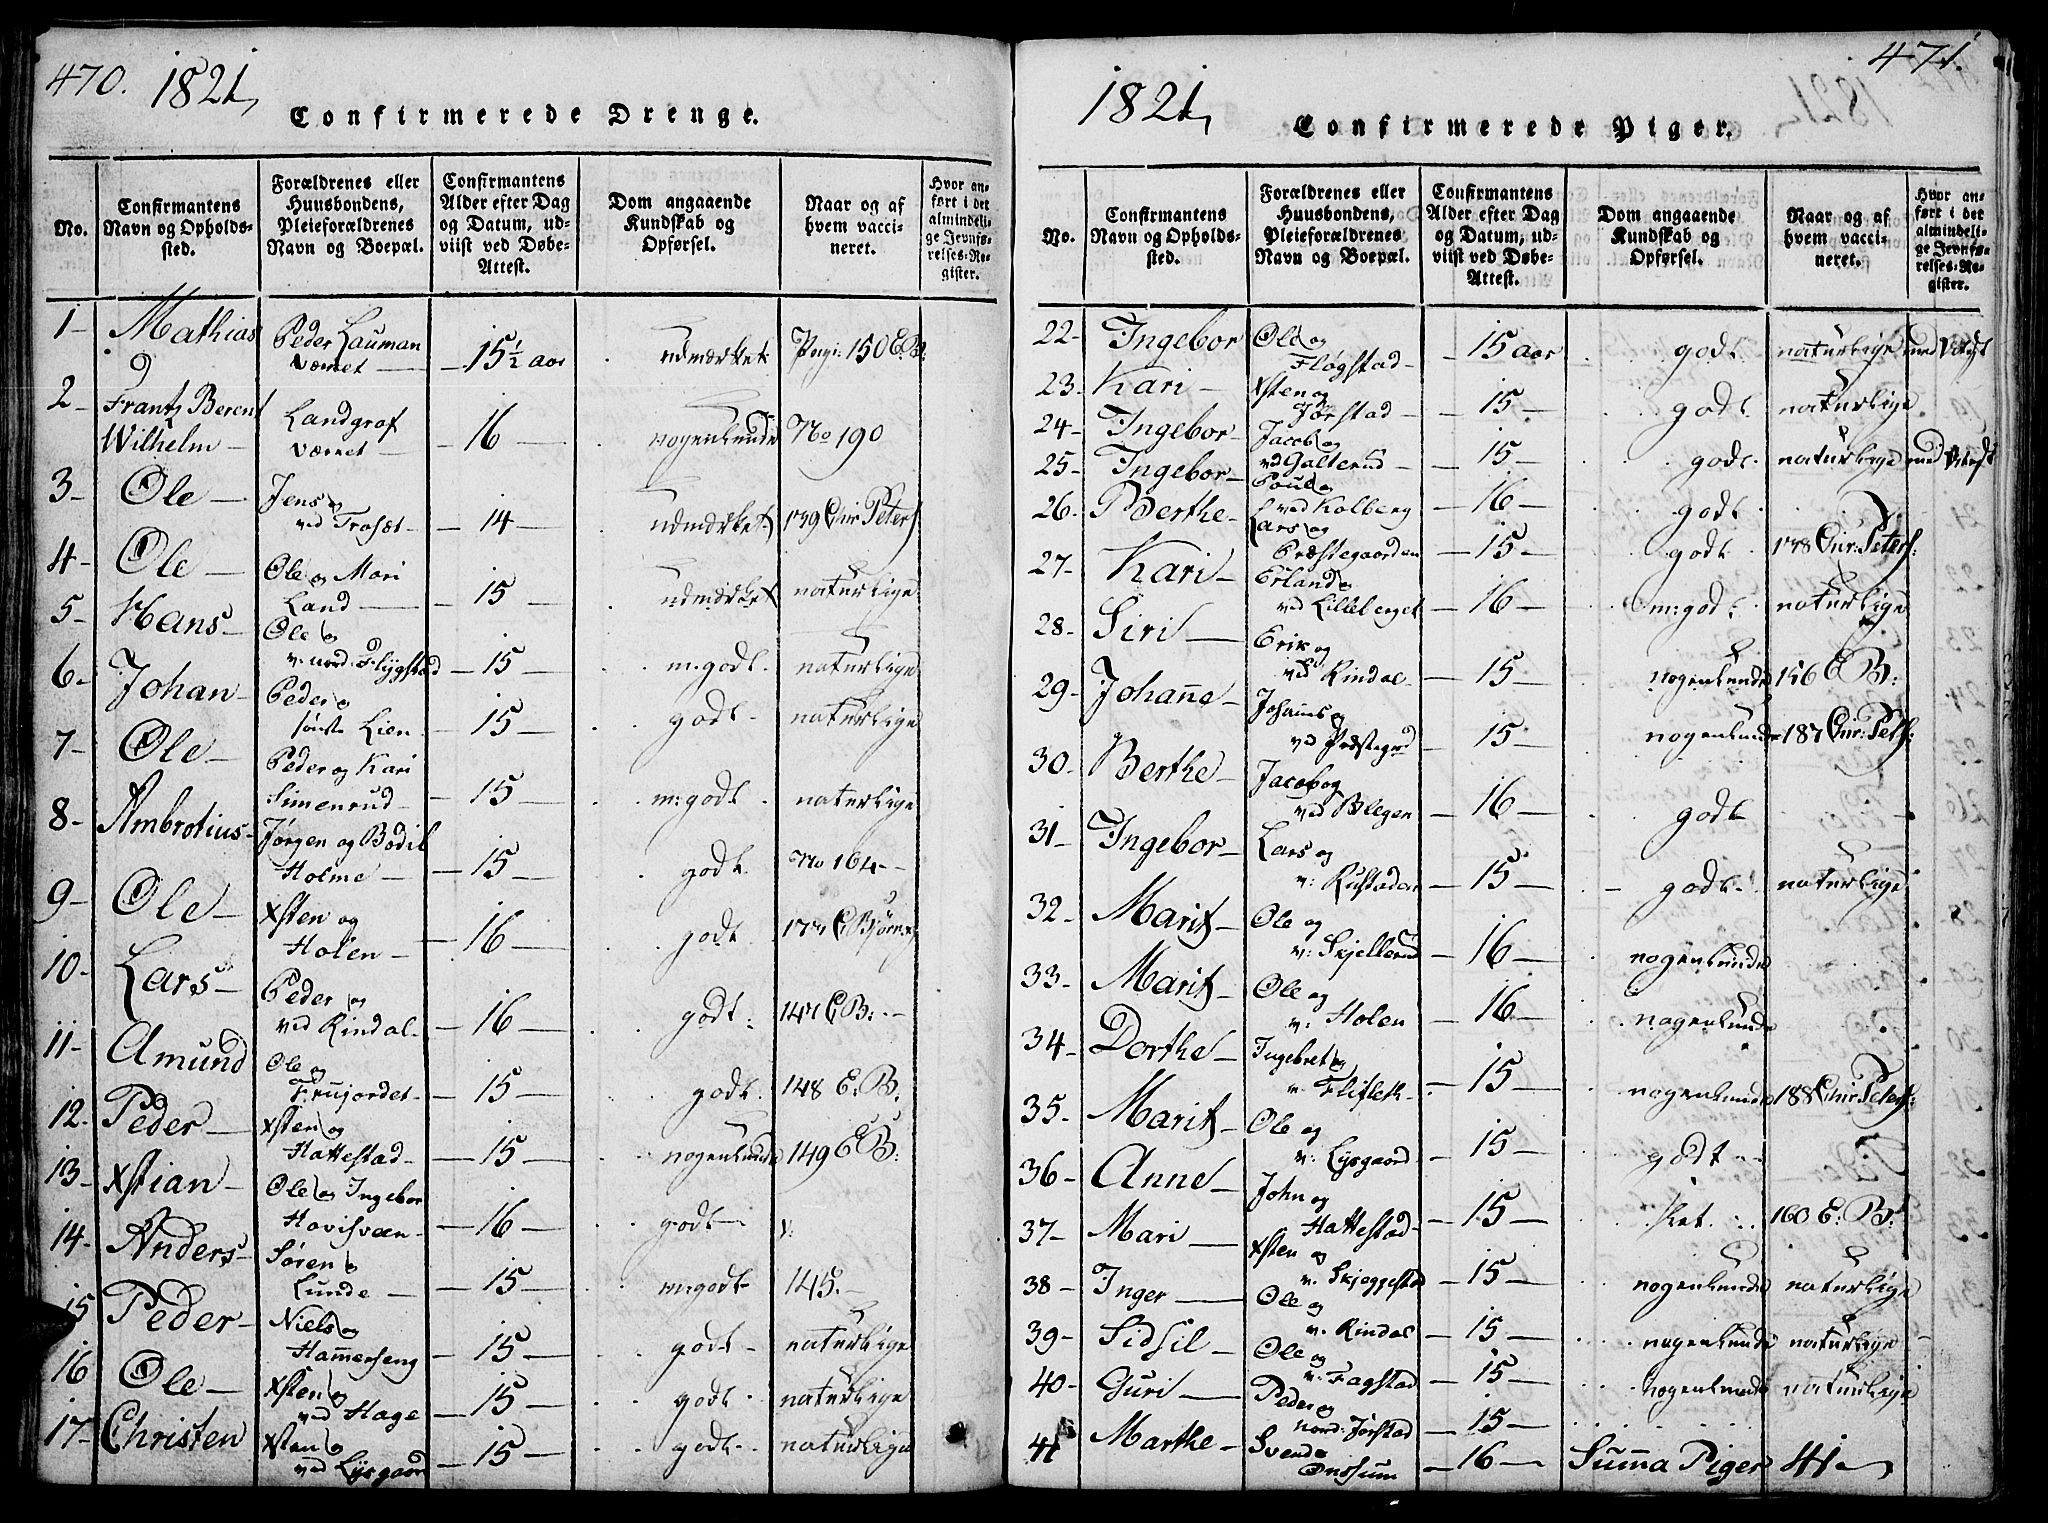 470. 1821,
Confirmerede Drenge.
No. | Confirmantens Navn og Opholdssted. | Forældrenes eller Huusbondens, Pleieforældrenes Navn og Boepæl. | Confirmantens Alder efter Dag og Datum, udviist ved Døbe-Attest. | Dom angaaende Kundskab og Opførsel. | Naar og af hvem vaccineret. | Hvor anført i det almindelige Jevnførelses-Register.
1- Mathias Peder Lauman Værnet — 15 1/2 aar udmærket 150 E. B:
2- Frantz Berent Wilhelm — Landgraf Værnet — 16 — nogenlunde No 190
3- Ole — Jens og ved Trosæt — 14 — udmærket 179 Chr Peters
4- Ole — Ole og Mari Land — 15 — udmærket naturlige
5- Hans — Ole og v: nord: Flygstad — 15 — m: godt. naturlige
6- Johan — Peder og søndr Lien — 15 — godt. naturlige
7- Ole — Peder og Kari Simenrud — 15 — m: godt. naturlige
8- Ambrotius — Jørgen og Bodil Holme — 15 — godt. No 164 —
9- Ole — Xsten og Holen — 16 — godt
10- Lars — Peder og ved Rindal — 16 — godt: 147 E B:
11- Amund Ole og Frujordet — 15 — godt. 148 E: B:
12- Peder — Xsten og Hattestad — 15 — nogenlunde 149 E B:
13- Xstian — Ole og Ingebor Hovisvæen — 16 — godt
14- Anders — Søren og Lunde — 15 — m: godt 145. —
15 Peder — Niels og Hamerseng — 15 — godt naturlige
16 Ole — Xsten og ved Hage — 15 — godt naturlige
17- Christen Xsten og ved Lysgaard — 15 — godt naturlige
1821,
471.
Confirmerede Piger.
No. | Confirmantens Navn og Opholdssted. | Forældrenes eller Huusbondens, Pleieforældrenes Navn og Boepæl. | Confirmantens Alder efter Dag og Datum, udviist ved Døbe-Attest. | Dom angaaende Kundskab og Opførsel. | Naar og af hvem vaccineret. | Hvor anført i det almindelige Jevnførelses-Register.
22- Ingebor Ole og Fløgstad — 15 aar godt naturlige
23- Kari — Xsten og Jørstad — 15 — godt naturlige
24- Ingebor — Jacob og ved Galterud — 15 — godt. naturlige
25- Ingebor — Poul og ved Kolberg — 16 — godt
26- Berthe — Lars og Præstegaarden — 15 — godt 178 Chr: Peters:
27- Kari — Erland og ved Lilleberget — 16 — m: godt naturlige
28- Siri — Erik og ved Rindal — 15 — nogenlunde 156 E B:
29- Johanne — Johanns og ved Præstegrd — 15 — nogenlunde 187 Chr: Peters:
30- Berthe — Jacob og ved Blegen — 16 — godt
31- Ingebor — Lars og v: Rustaden — 15 — godt. naturlige
32- Marit — Ole og v: Skjellerud — 16 — nogenlunde
33- Marit — Ole og v: Holen — 16 — nogenlunde
34- Dorthe — Ingebret og v: Flifleth — 15 — nogenlunde 188 Chr Peters:
35- Marit — Ole og v: Lysgaard — 15 — godt
36- Anne — John og Hattestad — 15 — slet. 160 E: B:
37- Mari — Xsten og v. Skjeggestad — 15 — nogenlunde naturlige
38- Inger — Ole og v. Rindal — 15 — nogenlunde naturlige
39- Sidsil — Ole og v: Fagstad — 15 — nogenlunde naturlige
40- Guri — Peder og nord: Jørstad — 15 —
41 Marthe — Svend og Onssum — 16 — Summa Piger 41 —